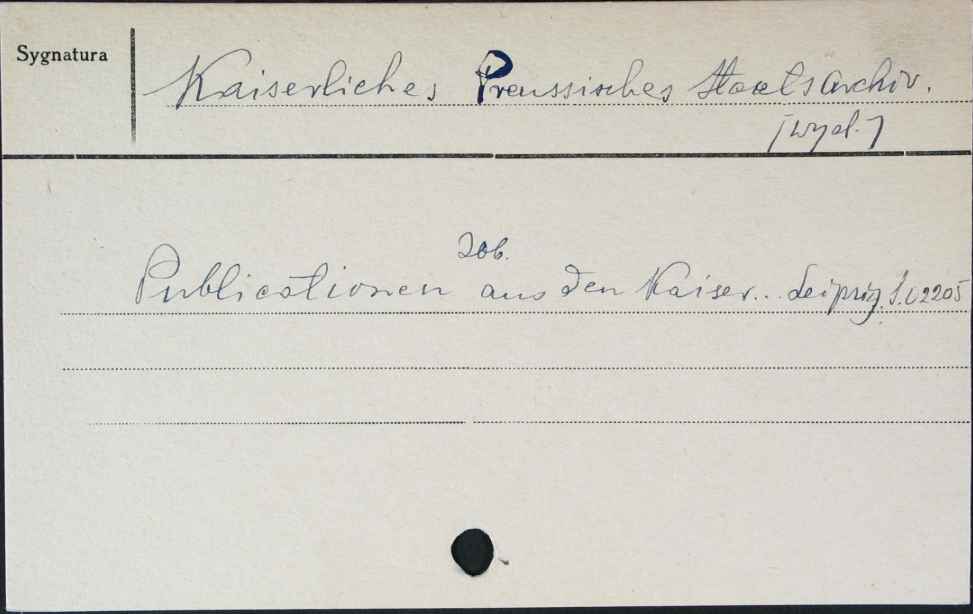 Sygnatura
Kaiserliches Preussisches Staatsarchiv.
[wyd.]
Zob.
Publicationen aus den Kaiser... Leipzig. S.02205